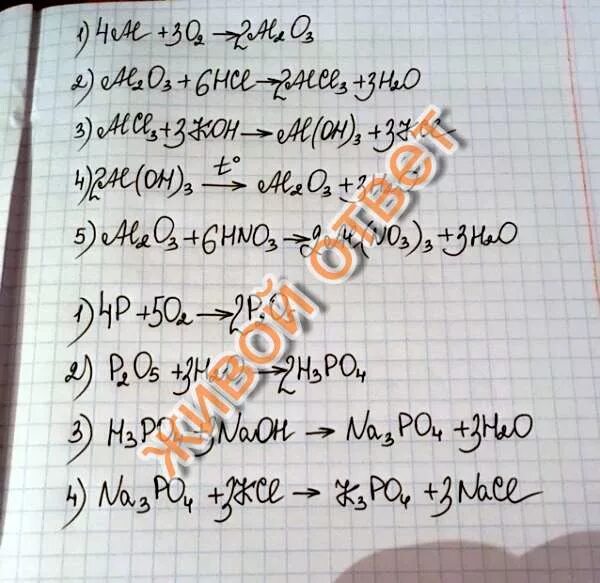 1) 4Al + 3O2 → 2Al2O3
2) Al2O3 + 6HCl → 2AlCl3 + 3H2O
3) AlCl3 + 3KOH → Al(OH)3 + 3KCl
4) 2Al(OH)3 t° → Al2O3 + 3H2O
5) Al2O3 + 6HNO3 → 2Al(NO3)3 + 3H2O
1) 4P + 5O2 → 2P2O5
2) P2O5 + 3H2O → 2H3PO4
3) H3PO4 + 3NaOH → Na3PO4 + 3H2O
4) Na3PO4 + 3KCl → K3PO4 + 3NaCl
ЖИВОЙ ОТВЕТ